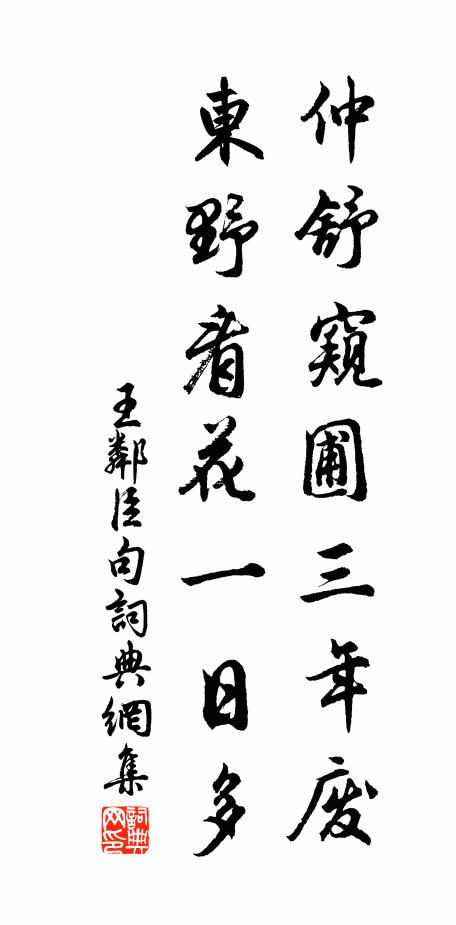 仲舒窺圃三年废
東野看花一日多
王鄰臣句詞典網集
詞典网印